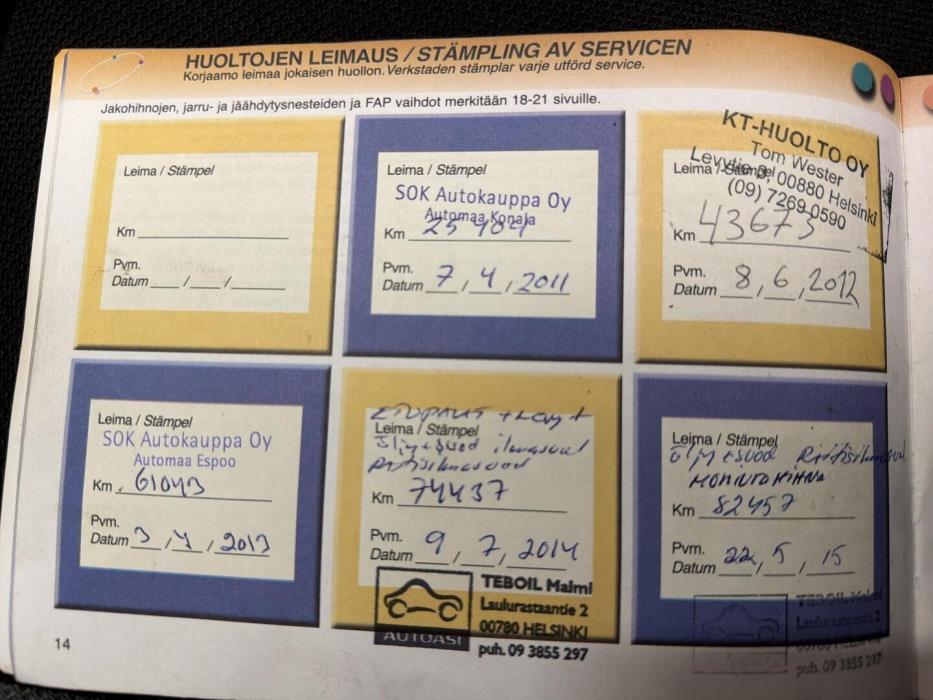 HUOLTOJEN LEIMAUS / STÄMPLING AV SERVICEN
Korjaamo leimaa jokaisen huollon. Verkstaden stämplar varje utförd service.
Jakohihnojen, jarru- ja jäähdytysnesteiden ja FAP vaihdot merkitään 18-21 sivuille.
Leima / Stämpel
Km
Pvm.
Datum / /
Leima / Stämpel
SOK Autokauppa Oy
Automaa Konala
Km
Pvm.
Datum 7, 4, 2011
KT-HUOLTO OY
Tom Wester
Levytie 00880 Helsinki
Leima / Stämpel
(09) 7269 0590
Km 43673
Pvm.
Datum 8, 6, 2012
Leima / Stämpel
SOK Autokauppa Oy
Automaa Espoo
Km 61043
Pvm.
Datum 3, 2013
Leima / Stämpel
ilmasuod
Km 74437
Pvm.
Datum 9, 7, 2014
TEBOIL Malmi
Laulurastaantie 2
00780 HELSINKI
puh. 09 3855 297
AUTOASI
Leima / Stämpel
MONIURAHIHNA
Km 82457
Pvm.
Datum 22, 5, 15
TEBOIL Malmi
Laulurastaantie 2
00780 HELSINKI
puh. 09 3855 297
14